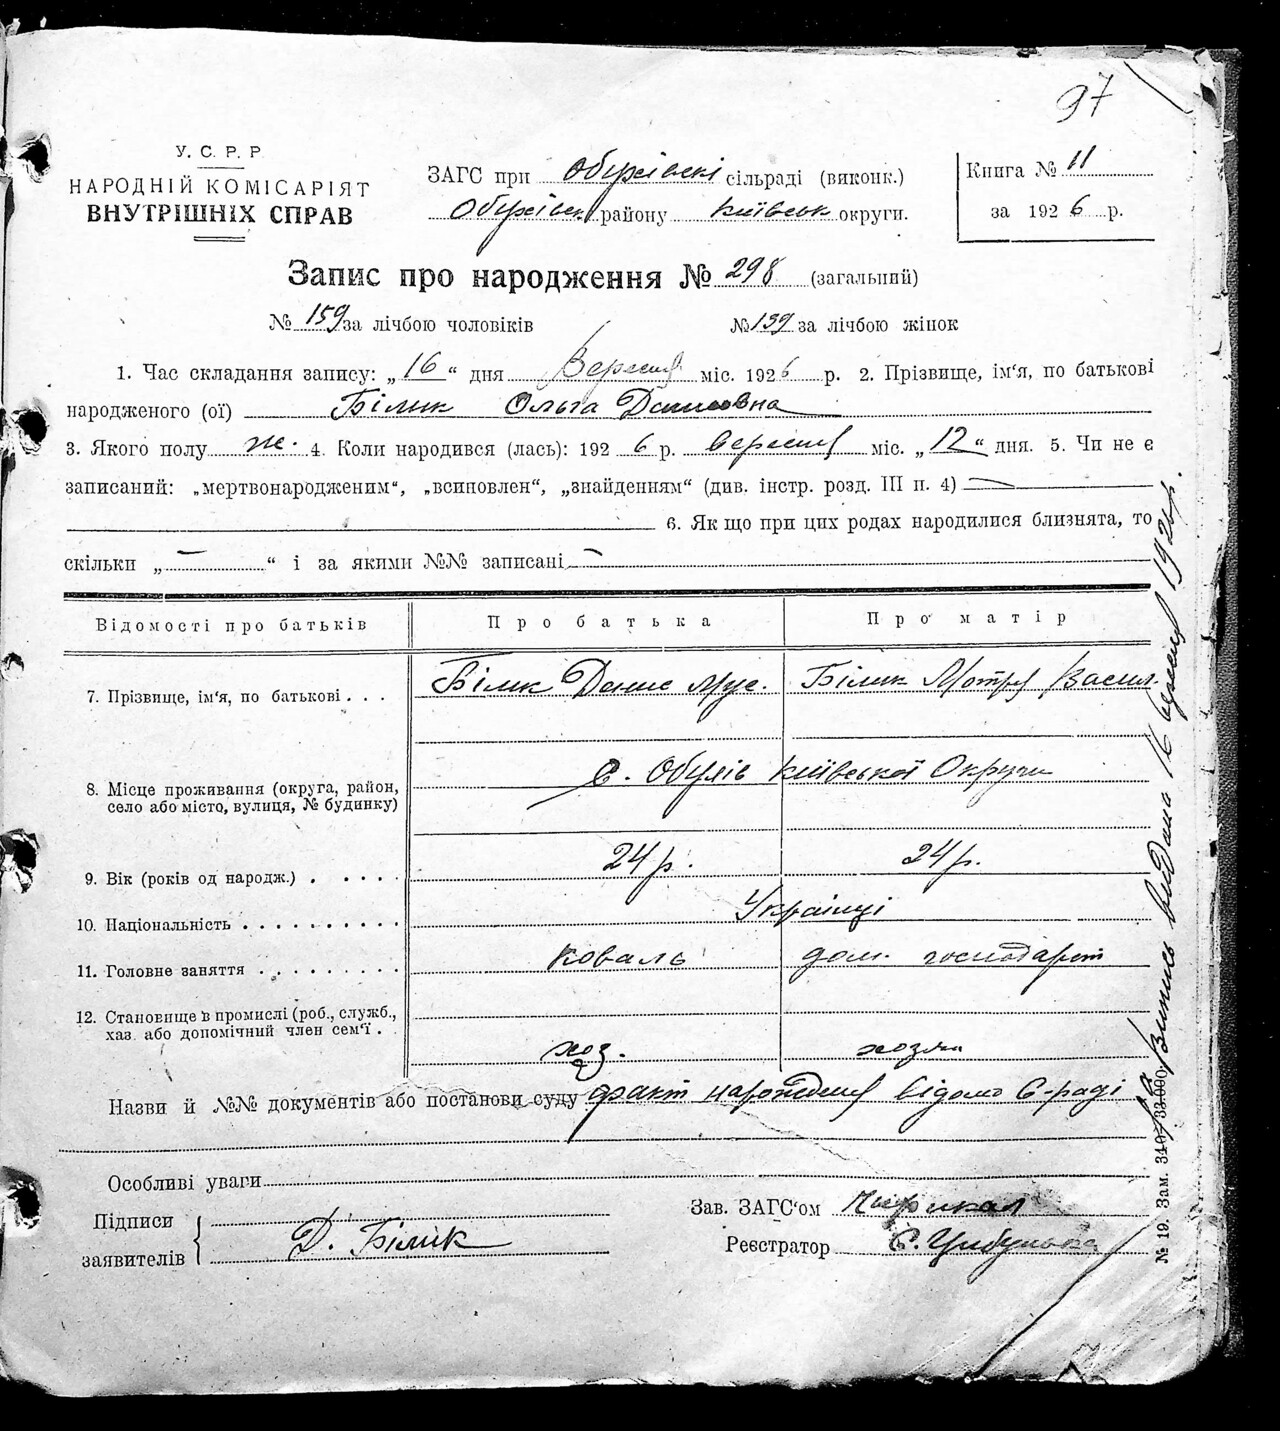 97
У. С. Р. Р
НАРОДНІЙ КОМІСАРІЯТ
ВНУТРІШНІХ СПРАВ
ЗАГС при Обухівські сільраді (виконк.)
Обухівськ району київськ округи.
Книга № 11
за 1926 р.
Запис про народження № 298 (загальний)
№ 159 за лічбою чоловіків № 139 за лічбою жінок
1. Час складання запису: „16“ дня Вересня міс. 1926 р. 2. Прізвище, ім‘я, по батькові
народженого (ої) Білик Ольга Денисовна
3. Якого полу ж. 4. Коли народився (лась): 1926 р. вересня міс. „12“ дня. 5. Чи не є
записаний: „мертвонародженим“, „всиновлен“, „знайденням“ (див. інстр. розд. III п. 4) —
6. Як що при цих родах народилися близнята, то
скільки „—“ і за якими №№ записані —
Відомості про батьків Про батька Про матір
7. Прізвище, ім‘я, по батькові . . . Білик Денис Мус. Білик Мотря Васил.
8. Місце проживання (округа, район,
село або місто, вулиця, № будинку)
С. Обухів київської Округи
9. Вік (років од народж.) . . . . . 24 р. 24 р.
10. Національність . . . . . . . . . . Українці
11. Головне заняття . . . . . . . . . коваль дом. господарст
12. Становище в промислі (роб., служб.,
хаз. або допомічний член сем‘ї . .
хоз. хозяй
Назви й №№ документів або постанови суду факт народження відомо С-раді
Особливі уваги
Підписи
заявителів
Д. Білик
Зав. ЗАГС‘ом
Реєстратор С. Цибулька
Випись видана 16 вересня 1926 р.
№ 19. Зам. 340/33.000